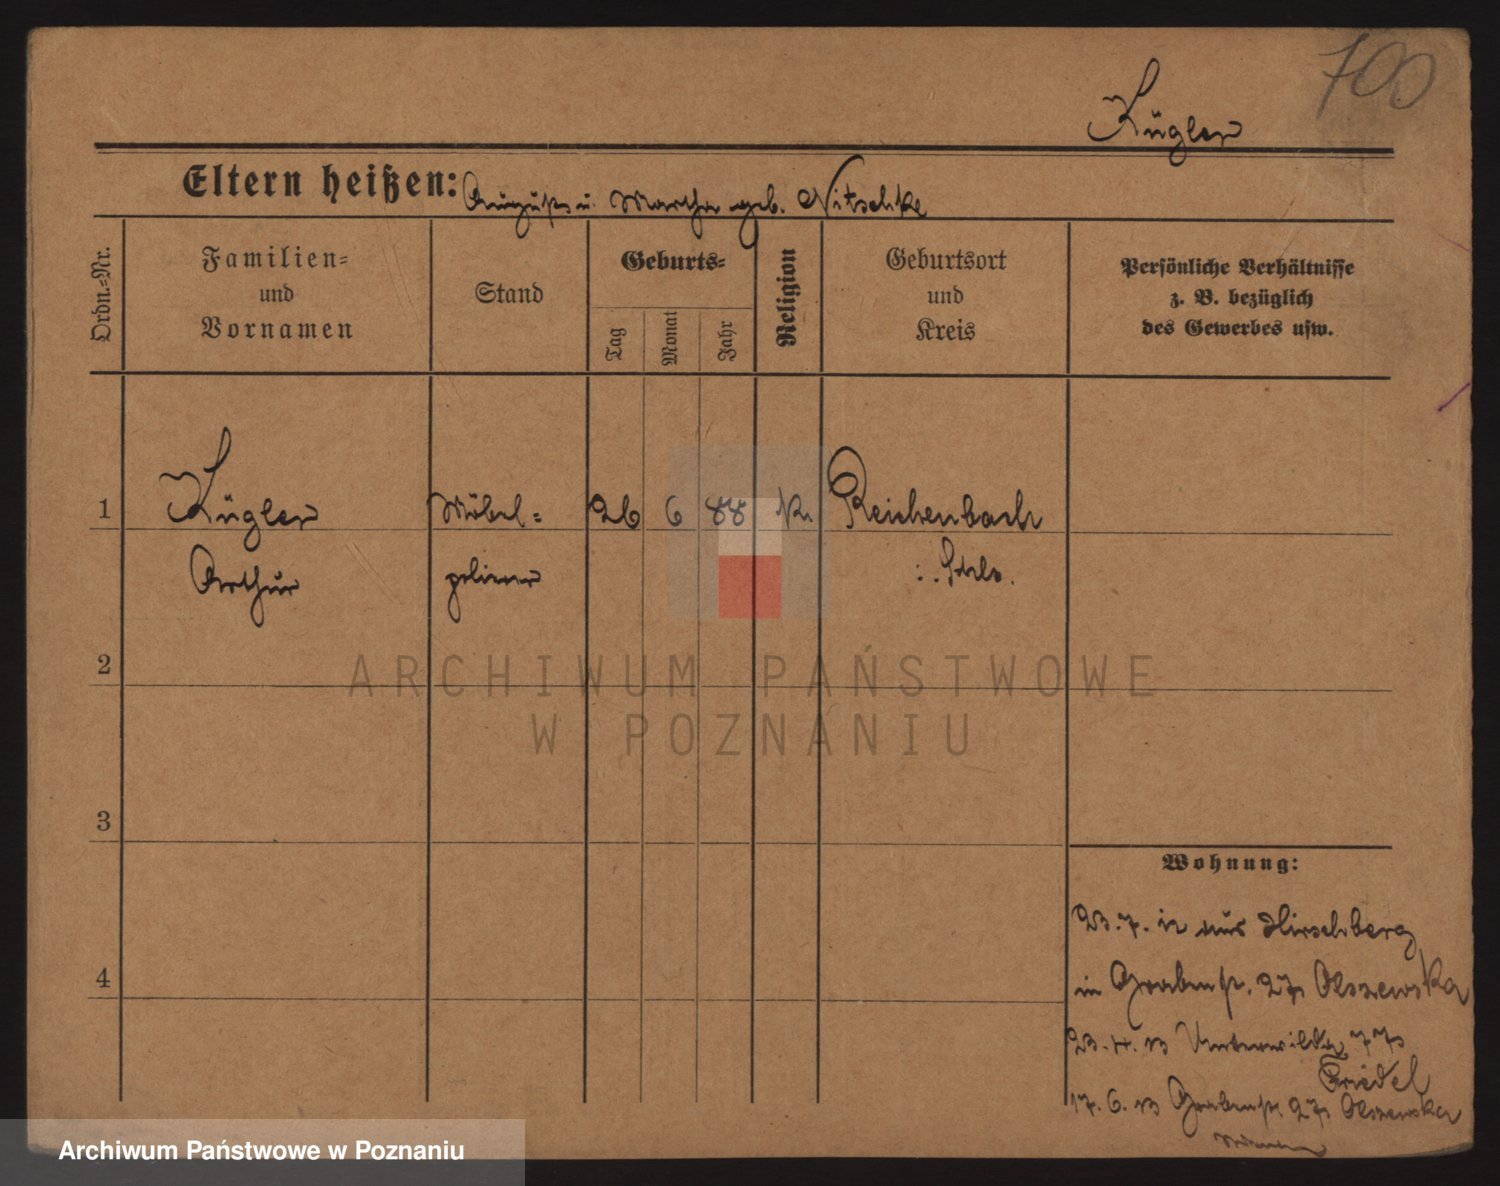 700
Kügler
Eltern heißen: August u. Martha geb. Nitschke
Ordn.-Nr.
Familien-
und
Vornamen
Stand
Geburts-
Tag
Monat
Jahr
Religion
Geburtsort
und
Kreis
Persönliche Verhältnisse
z. B. bezüglich
des Gewerbes usw.
1
Kügler
Arthur
Möbel-
polierer
26 6 88
Reichenbach
Schles.
2
3
4
Wohnung:
23.7.12 aus Hirschberg
in Grabenstr. 27 Olszewska
23.4.13 Unterwilda 7
Friedel
17.6.13 Grabenstr. 27 Olszewska
ARCHIWUM PAŃSTWOWE
W POZNANIU
Archiwum Państwowe w Poznaniu